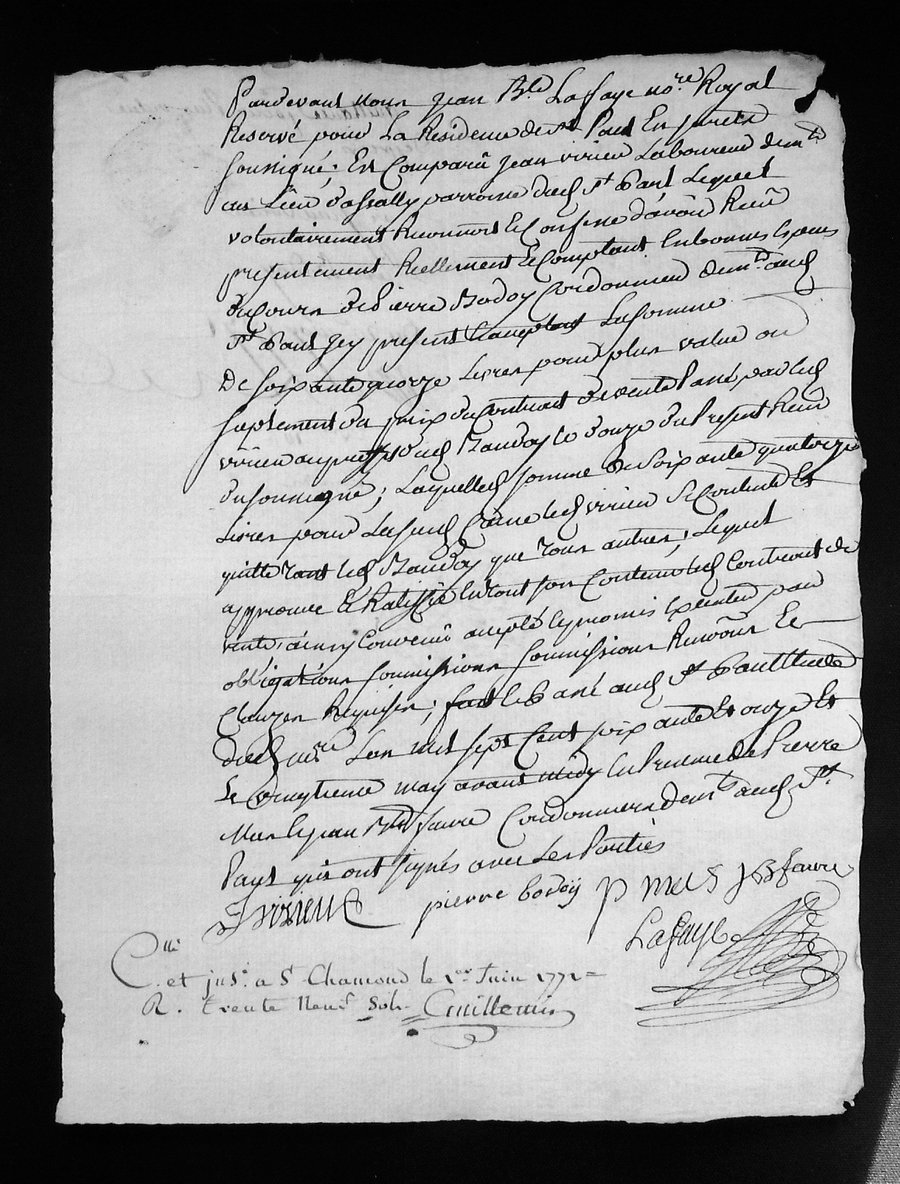 Pardevant nous jean Bte Laffaye nore Royal
Reservé pour La Residence de st Paul En jarets
soussigné; Est Comparû jean virieu Laboureur demt
au Lieu d'assally parroisse dud st Paul Lequel
volontairement Reconnoit & Confesse d'avoir Reçu
presentement Reellement & Comptant En bonnes Especes
du Cours de Pierre Bodoy Cordonnier demt aud
st Paul jcy present La somme
De soixante quatorze Livres pour plus value ou
suplement du prix du Contract de vente Passé par led
virieu au proffit dud Baudoy le douze du Present Reçu
du soussigné; Laquelle somme de soixante quatorze
Livres pour La susd Cause led virieu se Contente Et
quitte tant led Baudoy que tous autres; Lequel
approuve & Ratiffie En tout son Contenu led Contract de
vente; ainsy Convenu accepté & promis Executer par
obligations soumissions Renvoirs &
Clauzes Requises; fait & Passé aud st Paul Etude
dud nore L'an mil sept Cent soixante Et onze Et
Le vingtieme may avant midy En Presence de Pierre
Mas & jean Bte favre Cordonniers demt aud st
Paul qui ont signés avec Les Parties
J virieu pierre bodoy p mas J B favre
Laffaye
C.lle et jns. a St Chamond le 1er Juin 1771
R. trente neuf Sols Guillemin